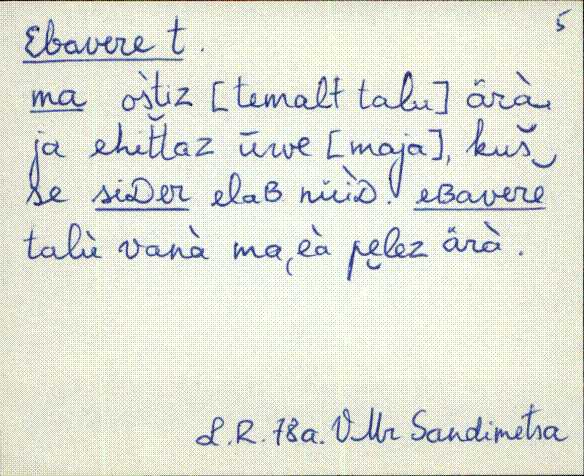 5
Ebavere t.
ma ośtiz [temalt talu] ärà
ja ehit̆taz ūwe [maja], kuš
se siDer elaB nüìD. eBavere
talù vanà ma‚eà pęlez ärà.
L.R. 78a. VMr Sandimetsa